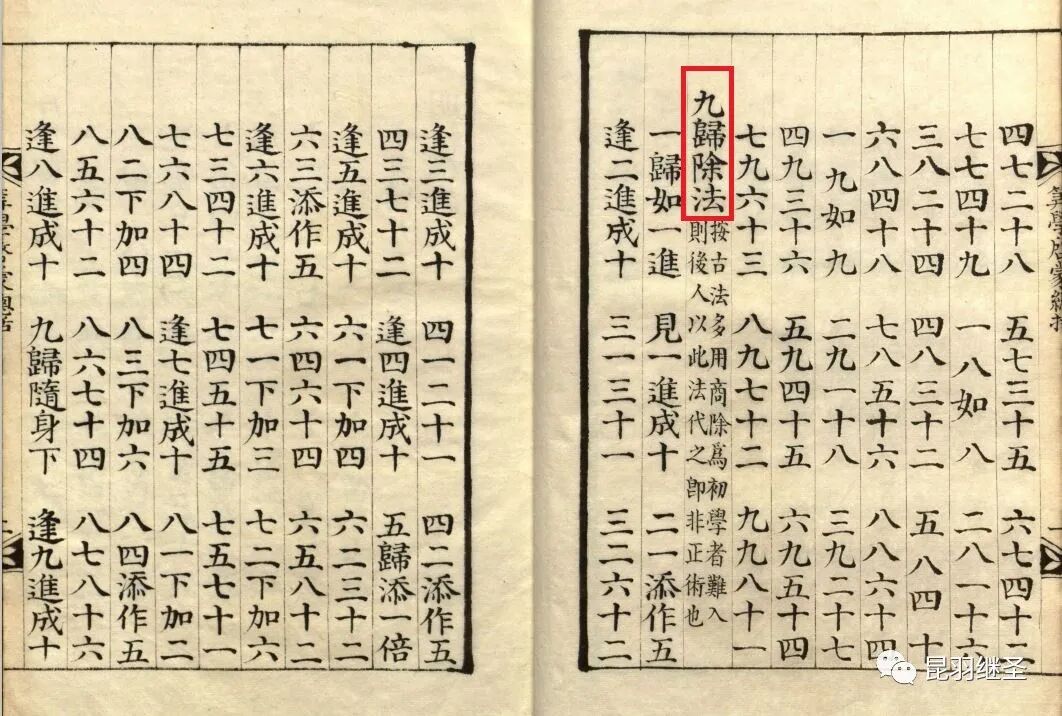 四七二十八 五七三十五 六七四十二
七七四十九 一八如八 二八一十六
三八二十四 四八三十二 五八四十
六八四十八 七八五十六 八八六十四
一九如九 二九一十八 三九二十七
四九三十六 五九四十五 六九五十四
七九六十三 八九七十二 九九八十一
九歸除法
按古法多用商除為初學者難入
則後人以此法代之即非正術也
一歸如一進 見一進成十 二一添作五
逢二進成十 三一三十一 三二六十二
逢三進成十 四一二十一 四二添作五
四三七十二 逢四進成十 五歸添一倍
逢五進成十 六一下加四 六二三十二
六三添作五 六四六十四 六五八十二
逢六進成十 七一下加三 七二下加六
七三四十二 七四五十五 七五七十一
七六八十四 逢七進成十 八一下加二
八二下加四 八三下加六 八四添作五
八五六十二 八六七十四 八七八十六
逢八進成十 九歸隨身下 逢九進成十
昆羽继圣